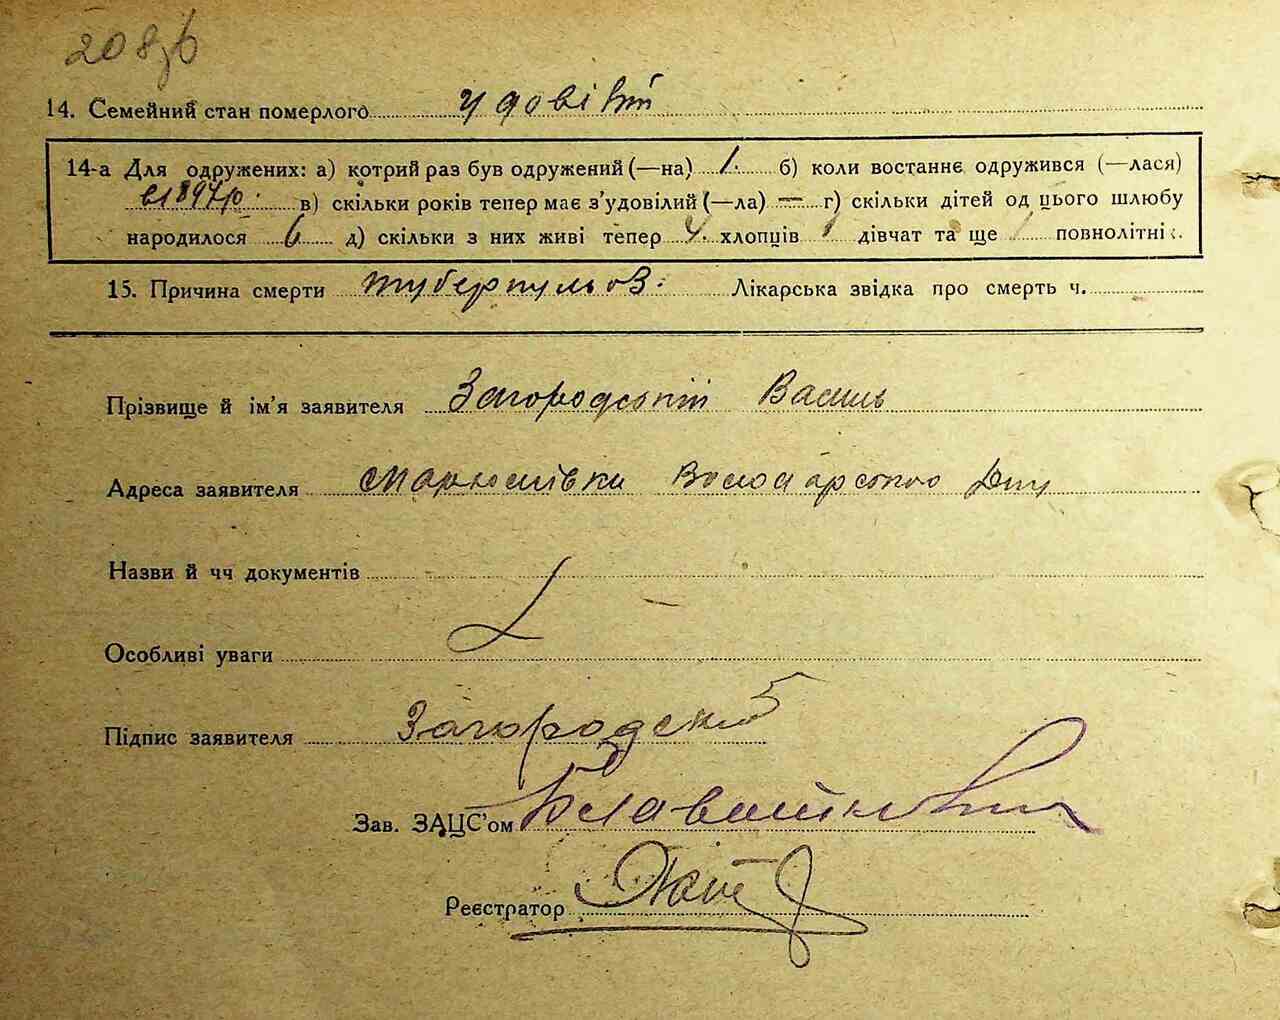 208зв
14. Семейний стан померлого удовілий
14-а Для одружених: а) котрий раз був одружений (—на) 1. б) коли востаннє одружився (—лася)
в 1897р. в) скільки років тепер має з'удовілий (—ла) — г) скільки дітей од цього шлюбу
народилося 6 д) скільки з них живі тепер 4. хлопців 1 дівчат та ще 1 повнолітні.
15. Причина смерти туберкульоз. Лікарська звідка про смерть ч.
Прізвище й ім'я заявителя Загородський Василь
Адреса заявителя Володарського
Назви й чч документів
Особливі уваги
Підпис заявителя Загородский
Зав. ЗАЦС'ом
Реєстратор